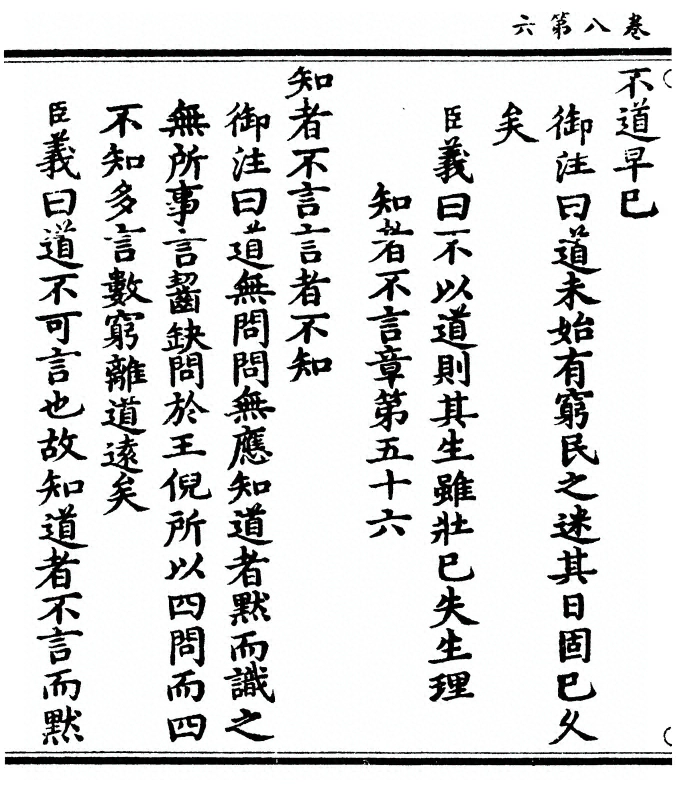 卷八第六
不道早已
御注曰道未始有窮民之迷其日固已久
矣
臣義曰不以道則其生雖壯已失生理
知者不言章第五十六
知者不言言者不知
御注曰道無問問無應知道者默而識之
無所事言齧缺問於王倪所以四問而四
不知多言數窮離道遠矣
臣義曰道不可言也故知道者不言而默